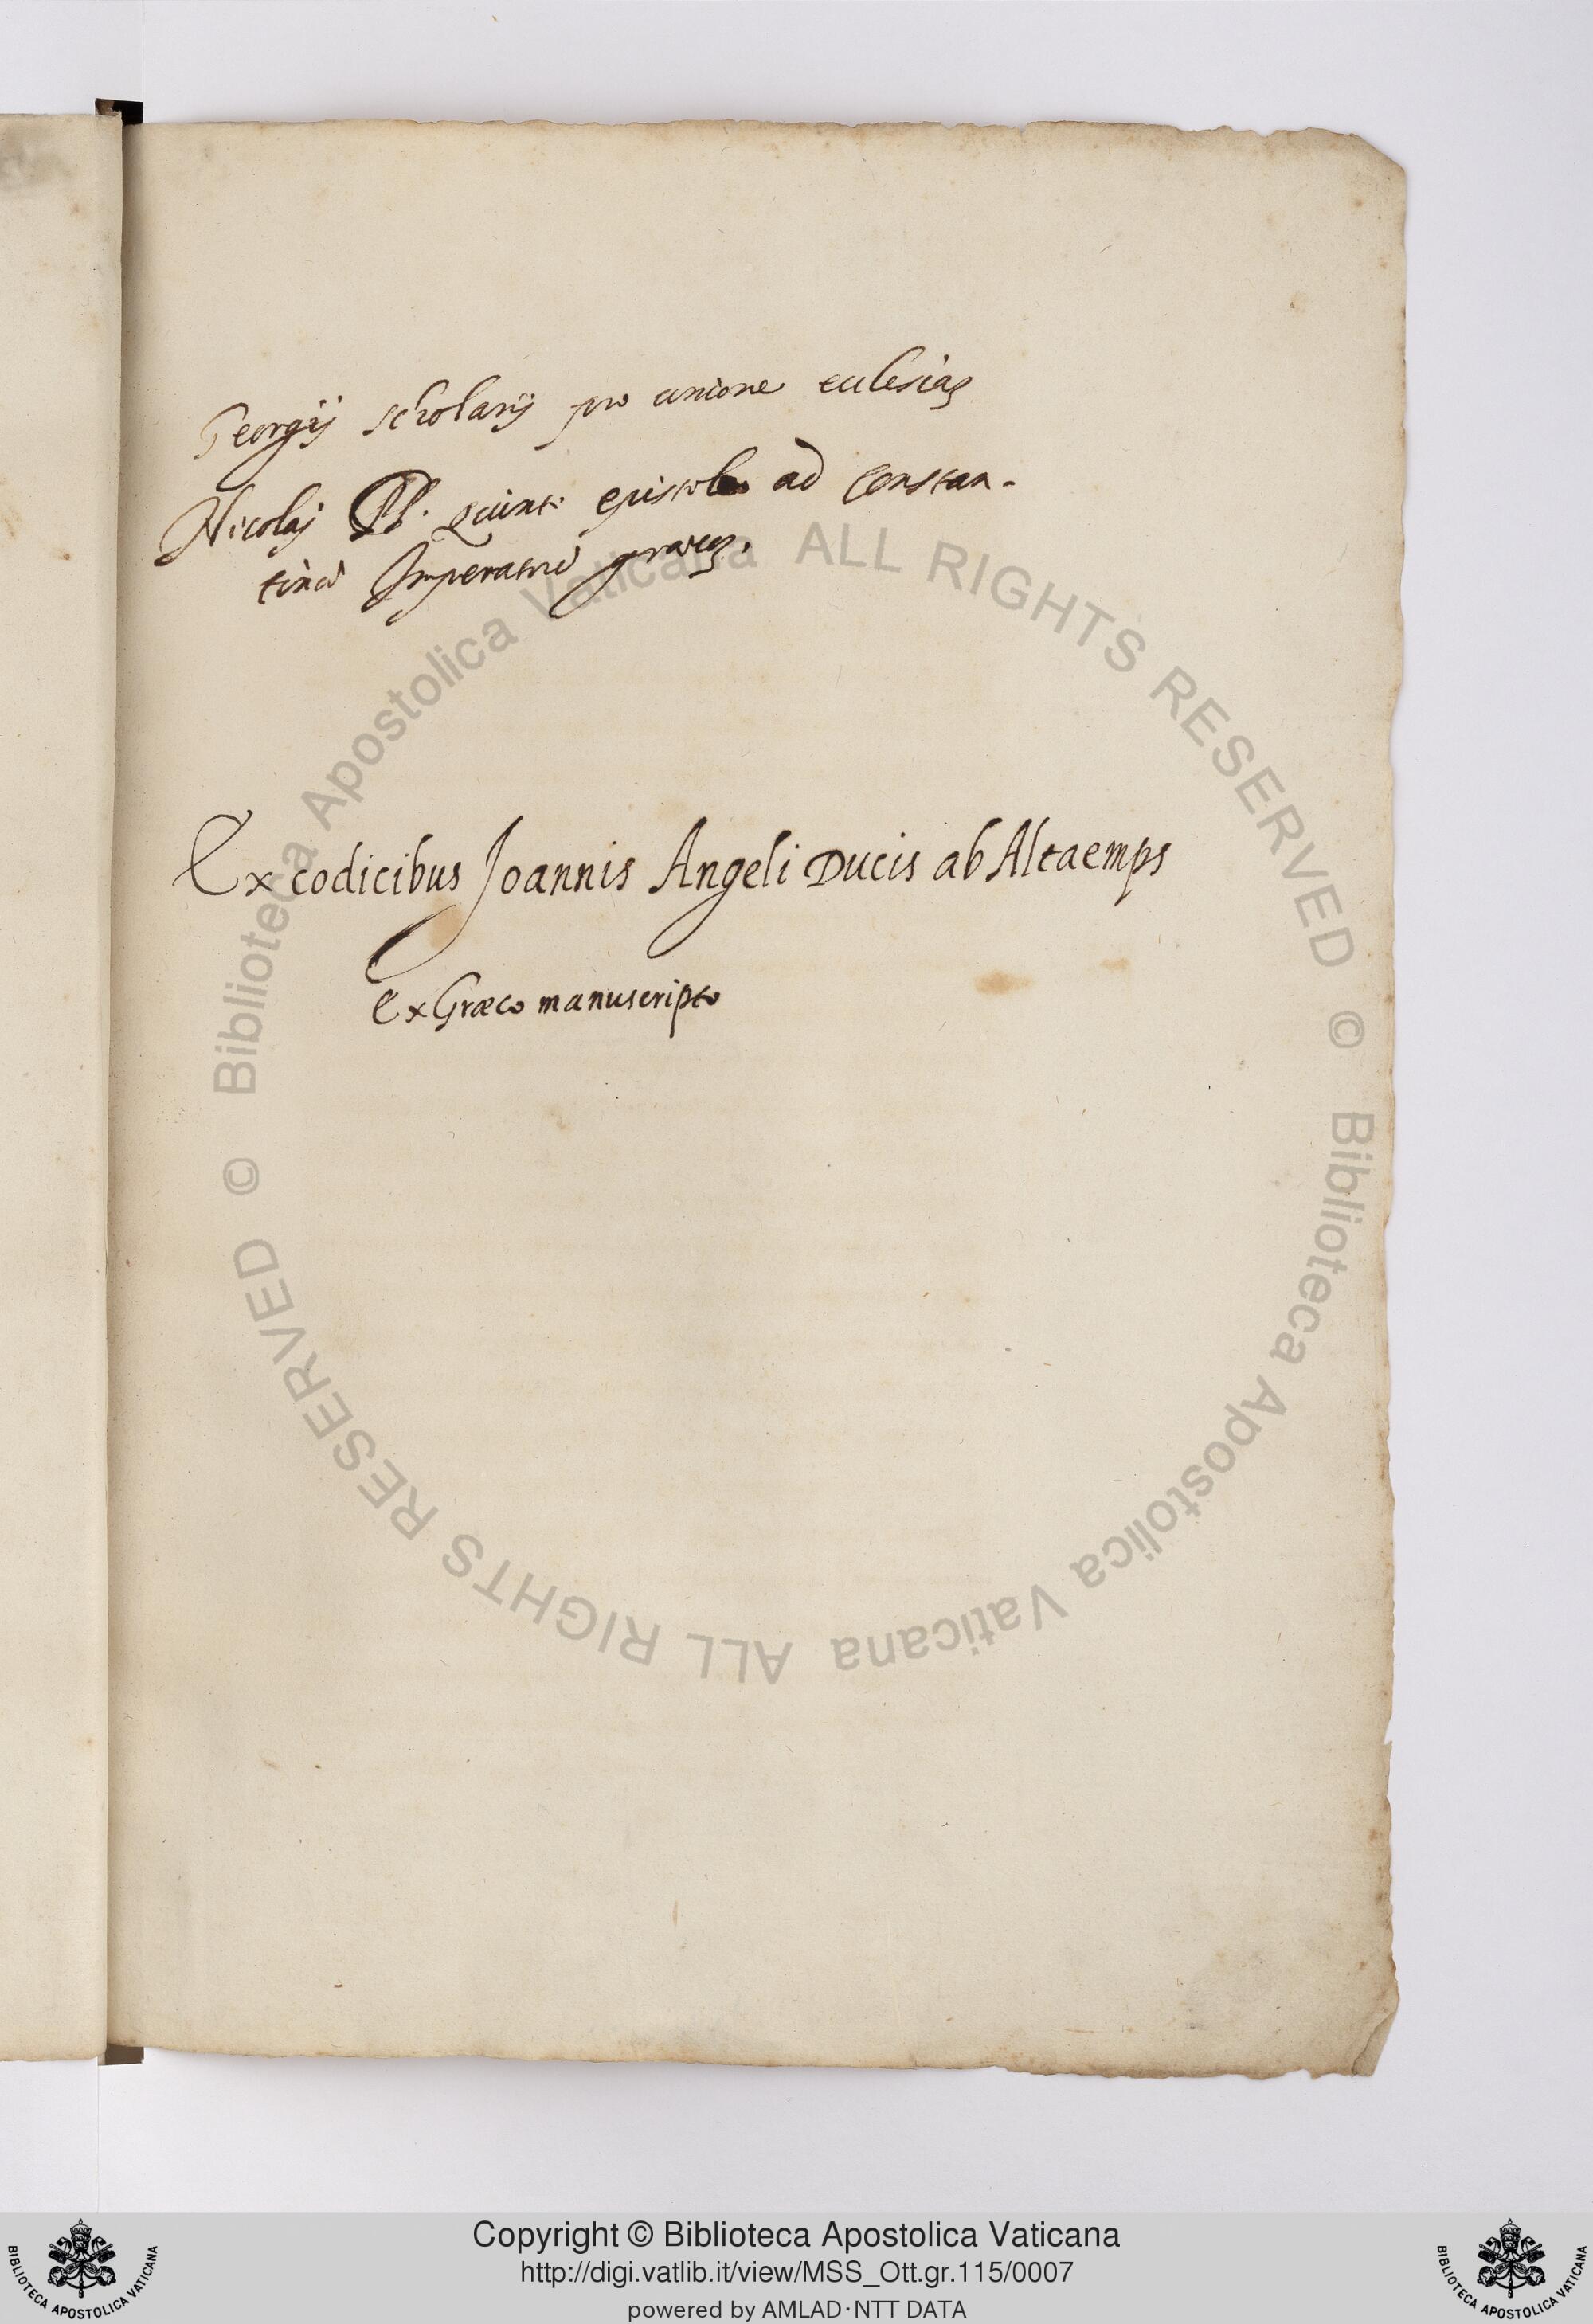 Georgij scholarij pro unione ecclesiaꝝ
Nicolaj PP. Quinti epistola ad Constan-
tinũ Imperatorẽ græcoꝝ.
Ex codicibus Joannis Angeli Ducis ab Altaemps
Ex Græco manuscripto
© Biblioteca Apostolica Vaticana ALL RIGHTS RESERVED
© Biblioteca Apostolica Vaticana ALL RIGHTS RESERVED
Copyright © Biblioteca Apostolica Vaticana
http://digi.vatlib.it/view/MSS_Ott.gr.115/0007
powered by AMLAD·NTT DATA
BIBLIOTECA APOSTOLICA VATICANA
BIBLIOTECA APOSTOLICA VATICANA